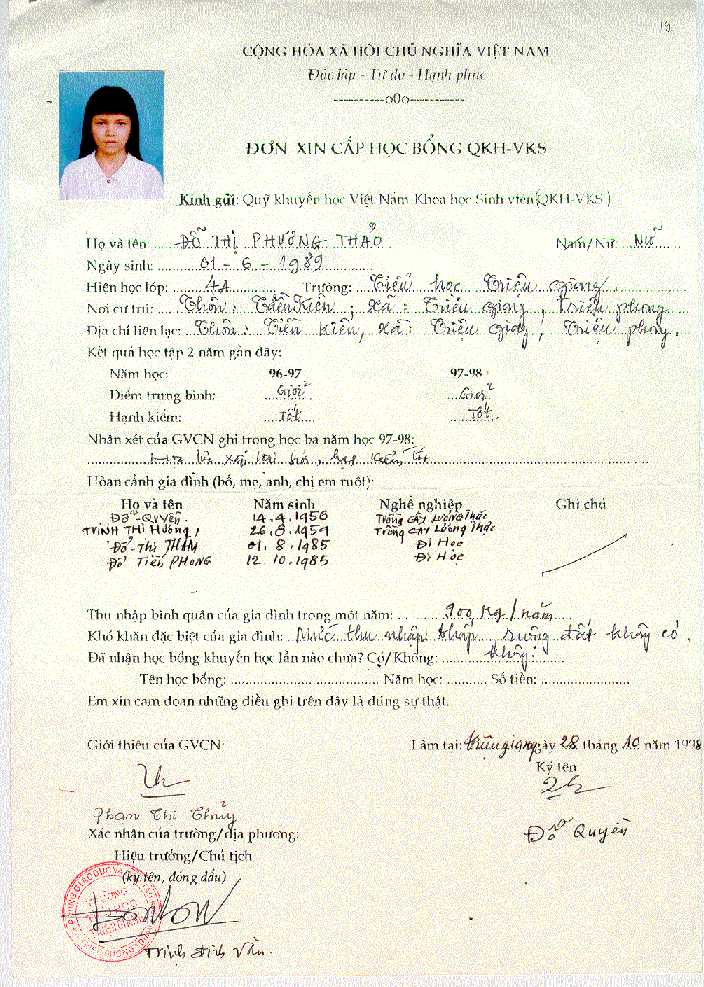 19
CỘNG HÒA XÃ HỘI CHỦ NGHĨA VIỆT NAM
Độc lập - Tự do - Hạnh phúc
-----------o0o-----------
ĐƠN XIN CẤP HỌC BỔNG QKH-VKS
Kính gửi: Quỹ khuyến học Việt Nam Khoa học Sinh viên (QKH-VKS)
Họ và tên ĐỖ THỊ PHƯƠNG THẢO Nam/Nữ: Nữ
Ngày sinh: 01 - 6 - 1989
Hiện học lớp: 4A Trường: Tiểu học Triệu giang
Nơi cư trú: Thôn: Tiền Kiên; Xã: Triệu giang, Triệu phong
Địa chỉ liên lạc: Thôn: Tiền Kiên, Xã: Triệu giang, Triệu phong.
Kết quả học tập 2 năm gần đây:
Năm học: 96-97 97-98
Điểm trung bình: Giỏi Giỏi
Hạnh kiểm: Tốt Tốt
Nhận xét của GVCN ghi trong học bạ năm học 97-98:
Hoàn cảnh gia đình (bố, mẹ, anh, chị em ruột):
Họ và tên Năm sinh Nghề nghiệp Ghi chú
Đỗ - Quyền. 14.4.1956 Trồng cây lương thực
TRỊNH THỊ Hường 26.8.1959 Trồng cây lương thực
Đỗ - Thị THẮM 01.8.1985 Đi Học
Đỗ Tiến PHONG 12.10.1985 Đi Học
Thu nhập bình quân của gia đình trong một năm: 900 Kg/năm
Khó khăn đặc biệt của gia đình: Mức thu nhập thấp, ruộng đất không có.
Đã nhận học bổng khuyến học lần nào chưa? Có/Không: không.
Tên học bổng: Năm học: Số tiền:
Em xin cam đoan những điều ghi trên đây là đúng sự thật.
Giới thiệu của GVCN: Làm tại: Triệu giang ngày 28 tháng 10 năm 1998
Ký tên
Phan Thị Thủy
Đỗ Quyền
Xác nhận của trường/địa phương:
Hiệu trưởng/Chủ tịch
(ký tên, đóng dấu)
Trịnh Đình Vân.